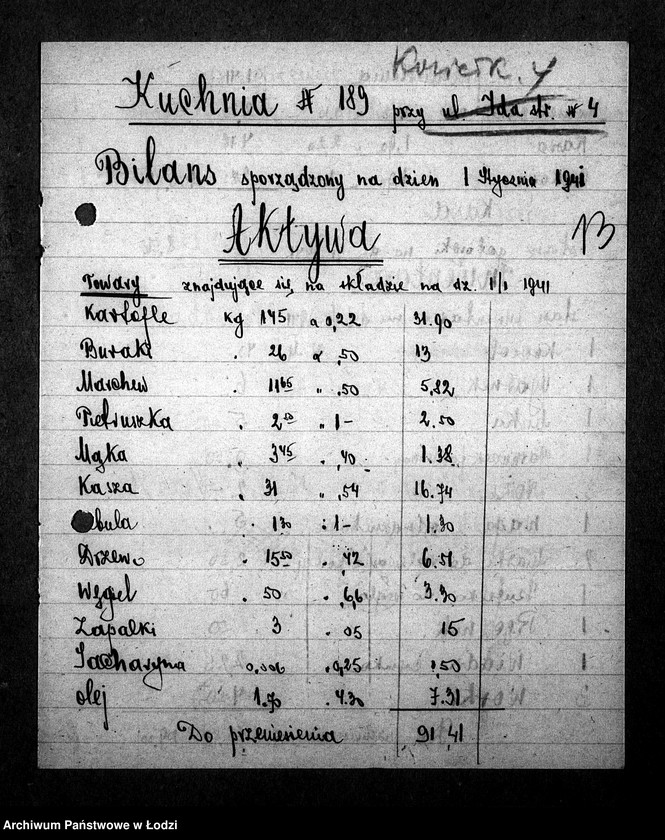 Kuchnia # 189 przy ul. Ida str. № 4
Bilans sporządzony na dzien 1 Stycznia 1941
13
AKtywa
Towary znajdujące się na składzie na dz. 1/I 1941
Kartofle kg 145 a 0,22 31.90
Buraki . 26 a ,50 13
Marchew . 11 65 " ,50 5,82
Pietruszka . 2 50 " 1- 2.50
Mąka . 3 45 " ,40 1.38
Kasza . 31 " ,54 16.74
bula . 1 30 : 1- 1.30
Drzewo . 15 50 . ,42 6.51
Węgel . 50 . 6,6 3.30
Zapałki 3 . 05 15
Sacharyna 0,006 . 0,25 ,50
olej 1.70 . 4.30 7.31
Do przeniesienia 91,41
Archiwum Państwowe w Łodzi